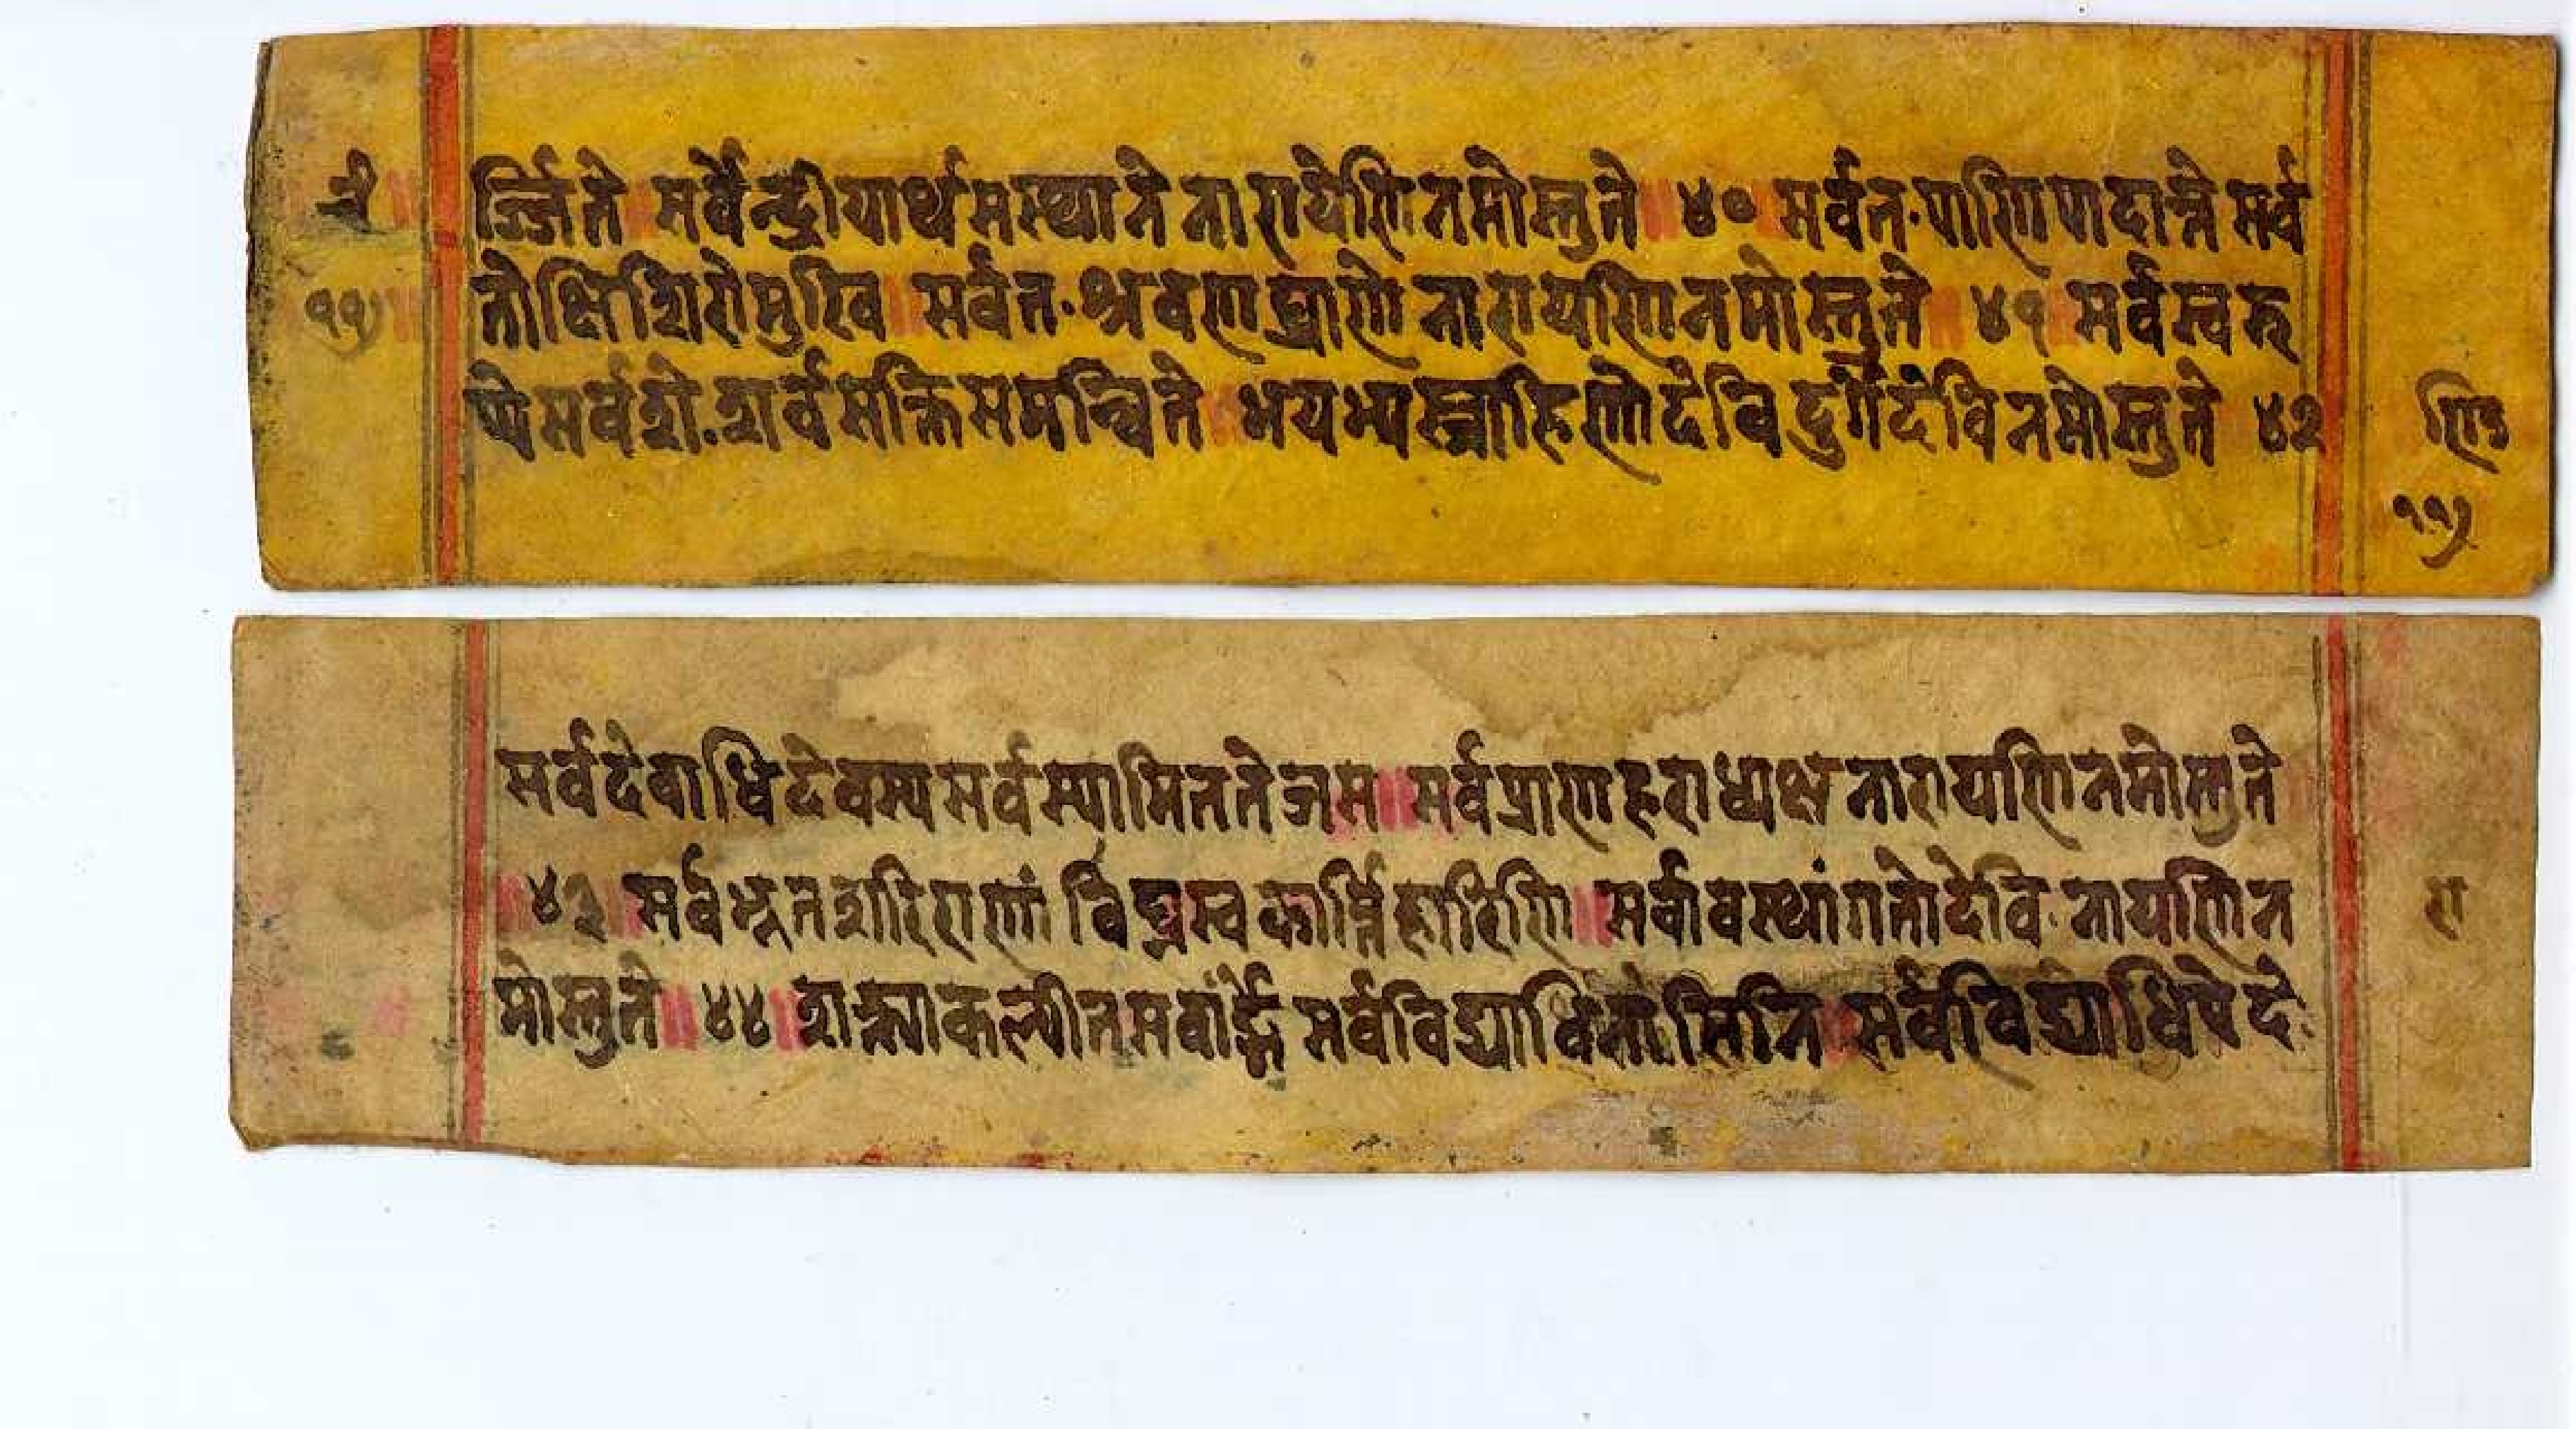 र्ज्जिते सर्वैन्द्रीयार्थसस्थाने नारायेणि नमोस्तुते ॥ ४० ॥ सर्वत·पाणिपादान्ते सर्व
तोक्षिशिरोमुखि ॥ सर्वत·श्रवणघ्राणे नारायणि नमोस्तुते ॥ ४१ ॥ सर्वस्वरू
पे सर्वशे·शर्वसक्तिसमन्विते ॥ भयभ्यस्त्राहि णो देवि दुर्गे देवि नमोस्तुते ४२
सर्वदेवाधिदेवस्य सर्वस्यामिततेजस ॥ सर्वप्राणहराध्यक्ष नारायणि नमोस्तुते
॥ ४३ ॥ सर्वभूतशरिराणां विघ्नस्व हारिणि ॥ सर्वावस्थांगतो देवि· नायणि न
मोस्तुते ॥ ४४ ॥ सर्वविद्याविनासिनि ॥ सर्वविद्याधिपे दे·